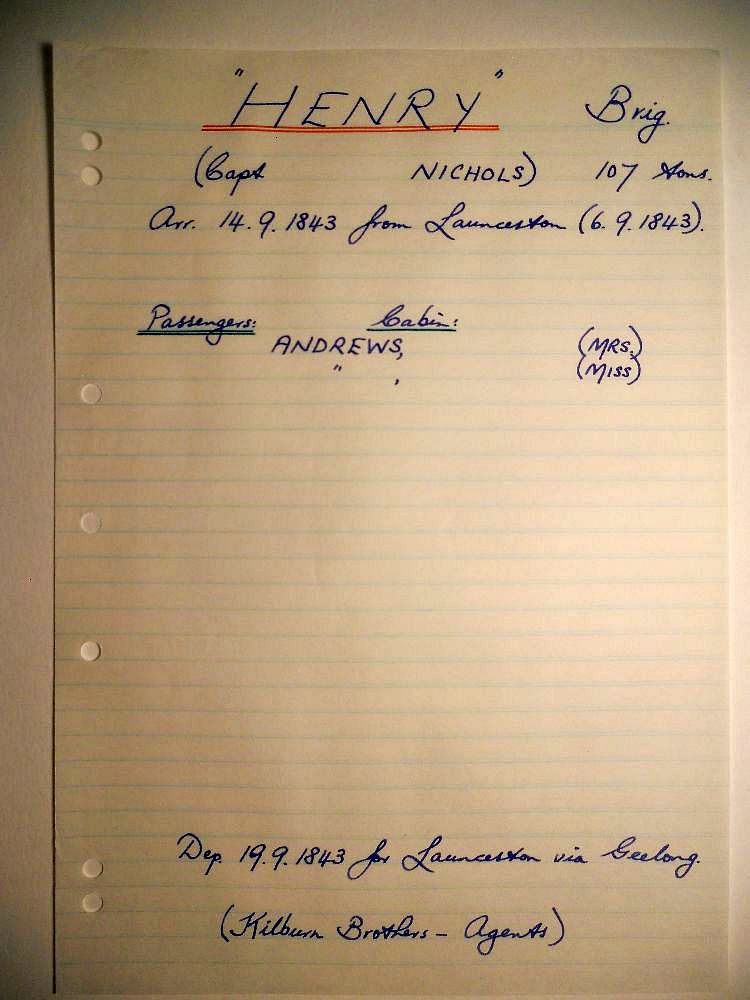 "HENRY" Brig.
(Capt NICHOLS) 107 tons.
Arr. 14.9.1843 from Launceston (6.9.1843).
Passengers: Cabin:
ANDREWS, (MRS.)
" , (MISS)
Dep. 19.9.1843 for Launceston via Geelong.
(Kilburn Brothers - Agents)